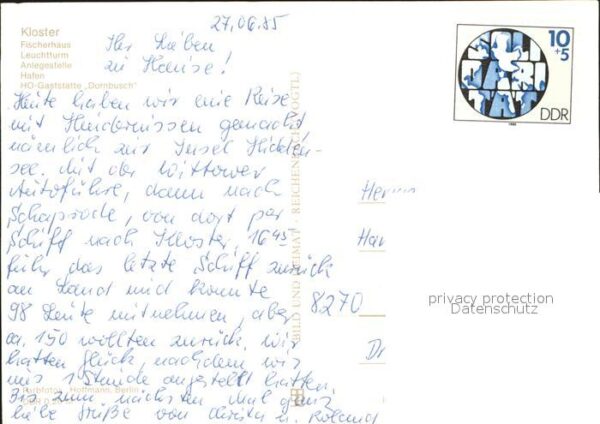 27.06.85
Kloster
Fischerhaus
Leuchtturm
Anlegestelle
Hafen
HO-Gaststätte „Dornbusch"
Ihr Lieben
zu Hause!
Heute haben wir eine Reise
mit Hindernissen gemacht
nämlich zur Insel Hidden-
see. Mit der Wittower
Autofähre, dann nach
Schaprode, von dort per
Schiff nach Kloster, 16⁴⁵
fuhr das letzte Schiff zurück
an Land und konnte
98 Leute mitnehmen, aber
ca. 150 wollten zurück. Wir
hatten Glück, nachdem wir
uns 1 Stunde angestellt hatten.
Bis zum nächsten Mal ganz
liebe Grüße von u. Roland
BILD UND HEIMAT · REICHENBACH (VOGTL)
10
+5
DDR
8270
privacy protection
Datenschutz
Farbfoto: Hoffmann, Berlin